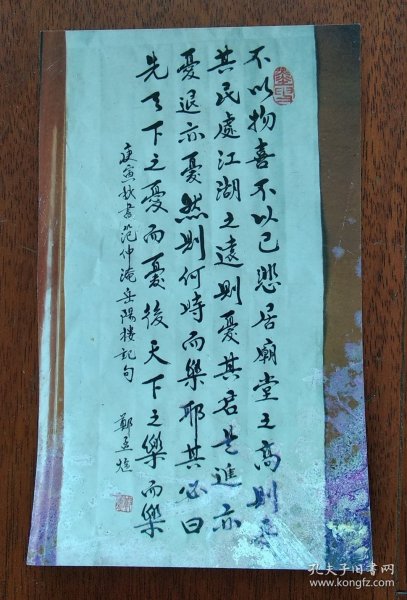 不以物喜不以己悲居廟堂之高則憂
其民處江湖之遠則憂其君是進亦
憂退亦憂然則何時而樂耶其必曰
先天下之憂而憂後天下之樂而樂
庚寅秋書范仲淹岳陽樓記句 鄭孟
孔夫子旧书网
www.kongfz.com